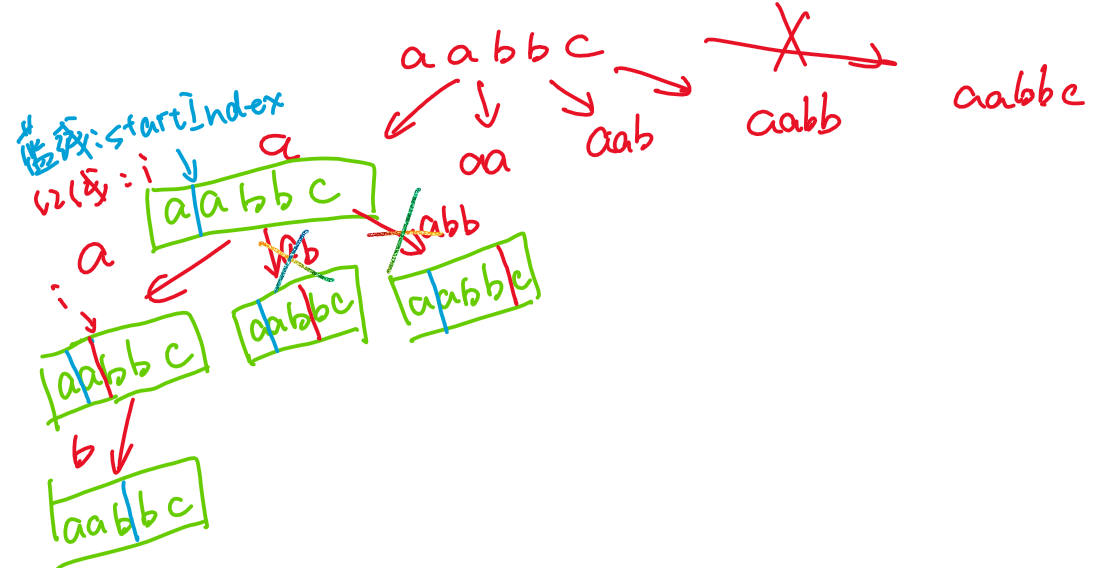 a a b b c
aabbc
aabb
aab
aa
蓝线:startIndex
红线:i
a
a a b b c
a
ab
abb
i
a a b b c
aabbc
aabbc
b
aabbc